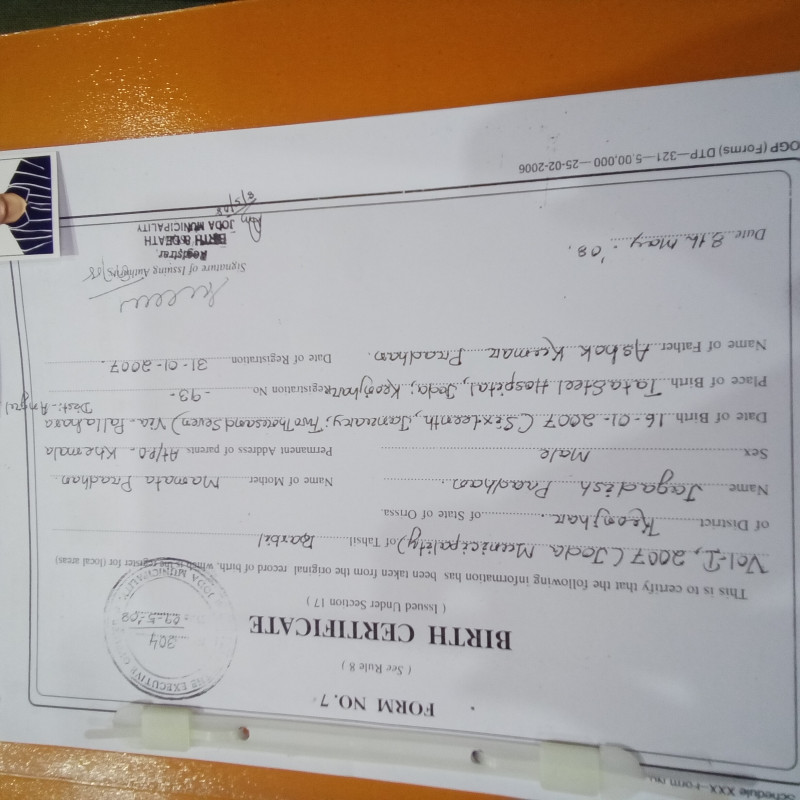 Schedule XXX-Form No.
FORM NO. 7
( See Rule 8 )
BIRTH CERTIFICATE
( Issued Under Section 17 )
304
THE EXECUTIVE
JODA MUNICIPALITY
This is to certify that the following information has been taken from the original record of birth, which is the register for (local areas)
Vol-I, 2007 (Joda Municipality) of Tahsil Barbil
of District Keonjhar. of State of Orissa
Name Jagadish Pradhan. Name of Mother Mamata Pradhan.
Sex Male Permanent Address of parents At/PO- Khemala
Date of Birth 16-01-2007 (Sixteenth, January, Two Thousand Seven) Via- Pallahara
Dist:- Angul
Place of Birth Tata Steel Hospital, Joda, Keonjhar Registration No -93-
Name of Father Ashok Kumar Pradhan. Date of Registration 31-01-2007.
Signature of Issuing Authority
Registrar,
BIRTH & DEATH
JODA MUNICIPALITY
Date 8th May '08.
OGP (Forms) DTP—321—5,00,000—25-02-2006